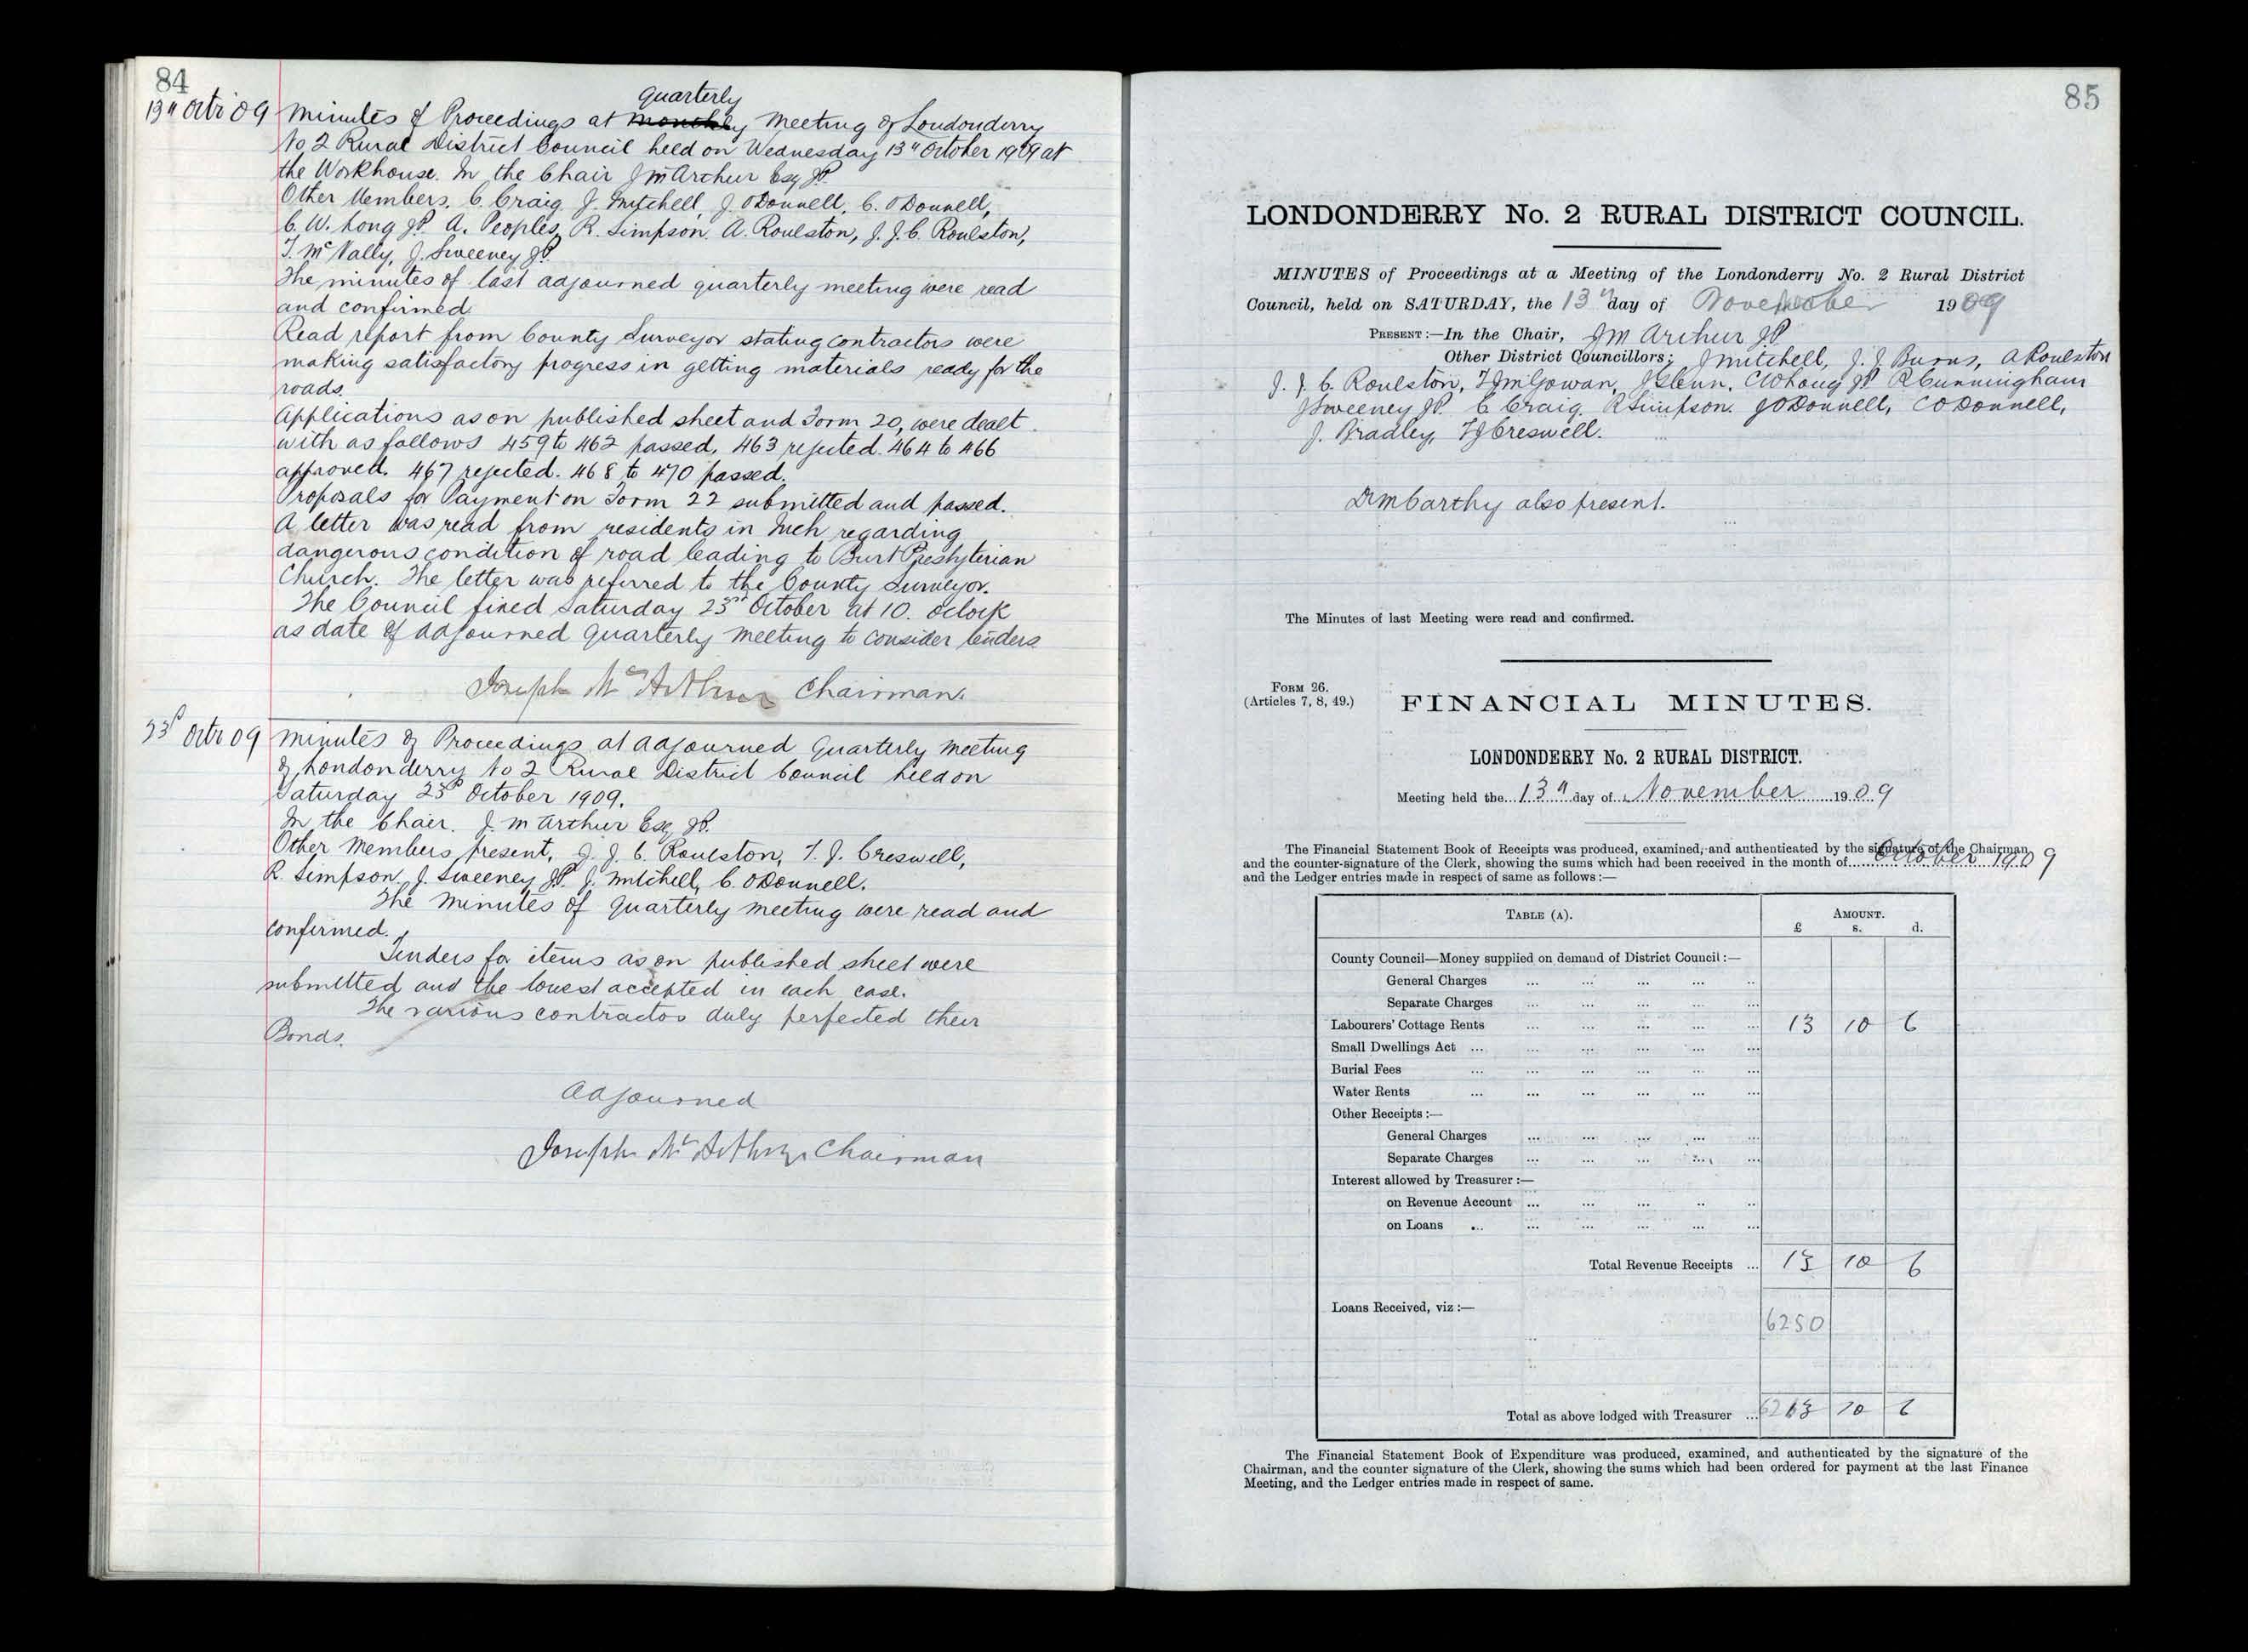 84
13" Octr 09 Minutes of Proceedings at monthly quarterly Meeting of Londonderry
No 2 Rural District Council held on Wednesday 13" October 1909 at
the Workhouse. In the Chair J McArthur Esq JP.
Other Members, C. Craig, J. Mitchell, J. O'Donnell, C. O'Donnell,
C. W. Long JP. A. Peoples, R. Simpson. A. Roulston, J. J. C. Roulston,
T. McNally, J. Sweeney JP.
The minutes of last adjourned quarterly meeting were read
and confirmed.
Read report from County Surveyor stating contractors were
making satisfactory progress in getting materials ready for the
roads.
Applications as on published sheet and Form 20, were dealt
with as follows 459 to 462 passed, 463 rejected. 464 to 466
approved. 467 rejected. 468 to 470 passed.
Proposals for Payment on Form 22 submitted and passed.
A letter was read from residents in Inch regarding
dangerous condition of road leading to Burt Presbyterian
Church. The letter was referred to the County Surveyor.
The Council fixed Saturday 23rd October at 10. oclock
as date of adjourned quarterly meeting to consider tenders.
Joseph McArthur Chairman.
23d Octr 09 Minutes of Proceedings at adjourned Quarterly Meeting
of Londonderry No 2 Rural District Council held on
Saturday 23d October 1909.
In the Chair. J. McArthur Esq JP.
Other Members present, J. J. C. Roulston, T. J. Creswell,
R. Simpson, J. Sweeney JP. J. Mitchell, C. O'Donnell.
The Minutes of quarterly meeting were read and
confirmed.
Tenders for items as on published sheet were
submitted and the lowest accepted in each case.
The various contractors duly perfected their
Bonds.
Adjourned
Joseph McArthur Chairman
85
LONDONDERRY No. 2 RURAL DISTRICT COUNCIL.
MINUTES of Proceedings at a Meeting of the Londonderry No. 2 Rural District
Council, held on SATURDAY, the 13" day of November 1909
PRESENT:—In the Chair, J McArthur JP
Other District Councillors; J Mitchell, J. J. Burns, A Roulston
J. J. C. Roulston, T J McGowan, J Glenn, C W Long JP R Cunningham
J Sweeney JP. C Craig. R Simpson. J O Donnell, C O Donnell,
J. Bradley, T J Creswell.
D McCarthy also present.
The Minutes of last Meeting were read and confirmed.
FORM 26.
(Articles 7, 8, 49.)
FINANCIAL MINUTES.
LONDONDERRY No. 2 RURAL DISTRICT.
Meeting held the 13" day of November 1909
The Financial Statement Book of Receipts was produced, examined, and authenticated by the signature of the Chairman
and the counter-signature of the Clerk, showing the sums which had been received in the month of October 1909
and the Ledger entries made in respect of same as follows:—
TABLE (A). AMOUNT.
£ s. d.
County Council—Money supplied on demand of District Council:—
General Charges
Separate Charges
Labourers' Cottage Rents 13 10 6
Small Dwellings Act
Burial Fees
Water Rents
Other Receipts:—
General Charges
Separate Charges
Interest allowed by Treasurer:—
on Revenue Account
on Loans
Total Revenue Receipts 13 10 6
Loans Received, viz:—
6250
Total as above lodged with Treasurer 6263 10 6
The Financial Statement Book of Expenditure was produced, examined, and authenticated by the signature of the
Chairman, and the counter signature of the Clerk, showing the sums which had been ordered for payment at the last Finance
Meeting, and the Ledger entries made in respect of same.